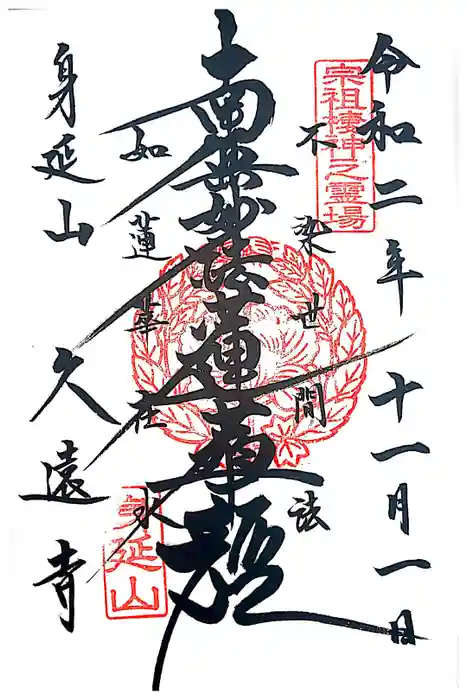 令和二年十一月一日
宗祖棲神之霊場
不染世間法
南無妙法蓮華経
如蓮華在水
身延山
身延山久遠寺